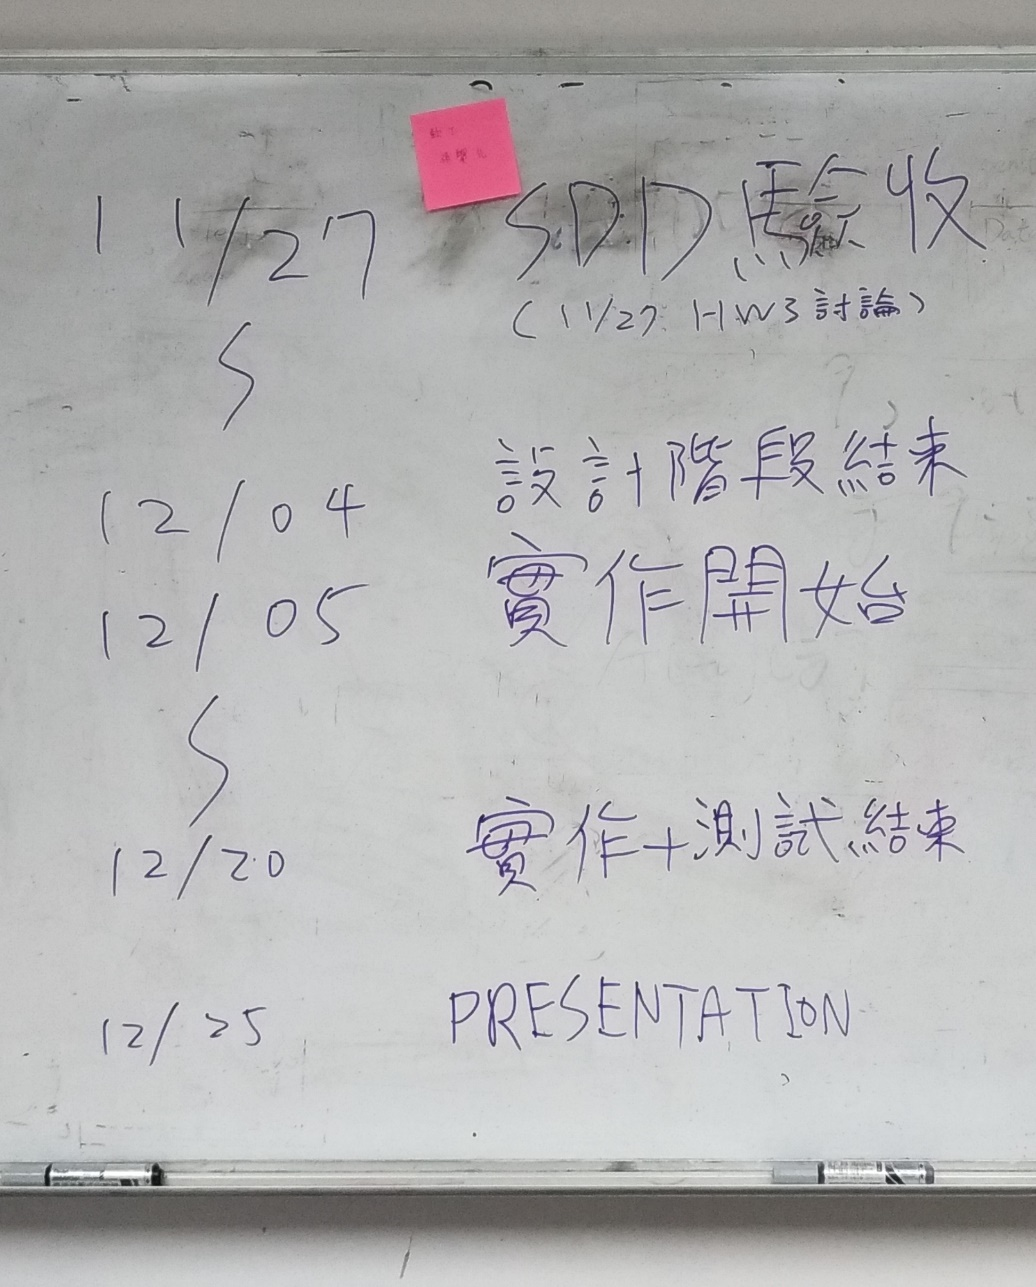 11/27 SDD驗收
(11/27 HW3討論)
∫
12/04 設計階段結束
12/05 實作開始
∫
12/20 實作+測試結束
12/25 PRESENTATION